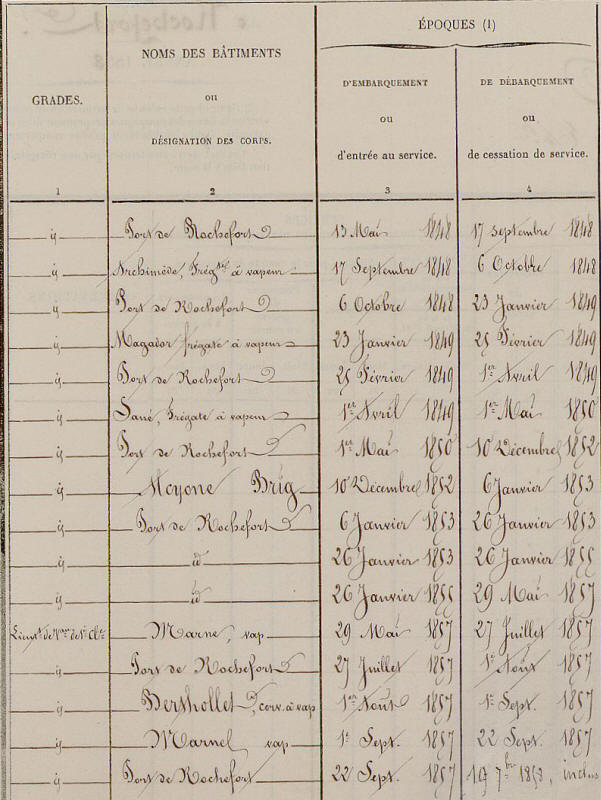 ÉPOQUES (1)
GRADES.
NOMS DES BÂTIMENTS
ou
DÉSIGNATION DES CORPS.
D'EMBARQUEMENT
ou
d'entrée au service.
DE DÉBARQUEMENT
ou
de cessation de service.
1 2 3 4
id Port de Rochefort 13 Mai 1848 17 Septembre 1848
id Archimède, Frég à vapeur 17 Septembre 1848 6 Octobre 1848
id Port de Rochefort 6 Octobre 1848 23 Janvier 1849
id Magador frégate à vapeur 23 Janvier 1849 25 Février 1849
id Port de Rochefort 25 Février 1849 1er Avril 1849
id Sané, Frégate à vapeur 1er Avril 1849 1er Mai 1850
id Port de Rochefort 1er Mai 1850 10 Décembre 1852
id Alcyone Brig 10 Décembre 1852 6 Janvier 1853
id Port de Rochefort 6 Janvier 1853 26 Janvier 1853
id id 26 Janvier 1853 26 Janvier 1855
id id 26 Janvier 1855 29 Mai 1857
Lieut de de 1re Cl Marne, vap 29 Mai 1857 27 Juillet 1857
id Port de Rochefort 27 Juillet 1857 1er Aout 1857
id Berthollet, corv. à vap 1er Aout 1857 1er Sept. 1857
id Marne, vap 1er Sept. 1857 22 Sept. 1857
id Port de Rochefort 22 Sept. 1857 7bre 1858, inclus